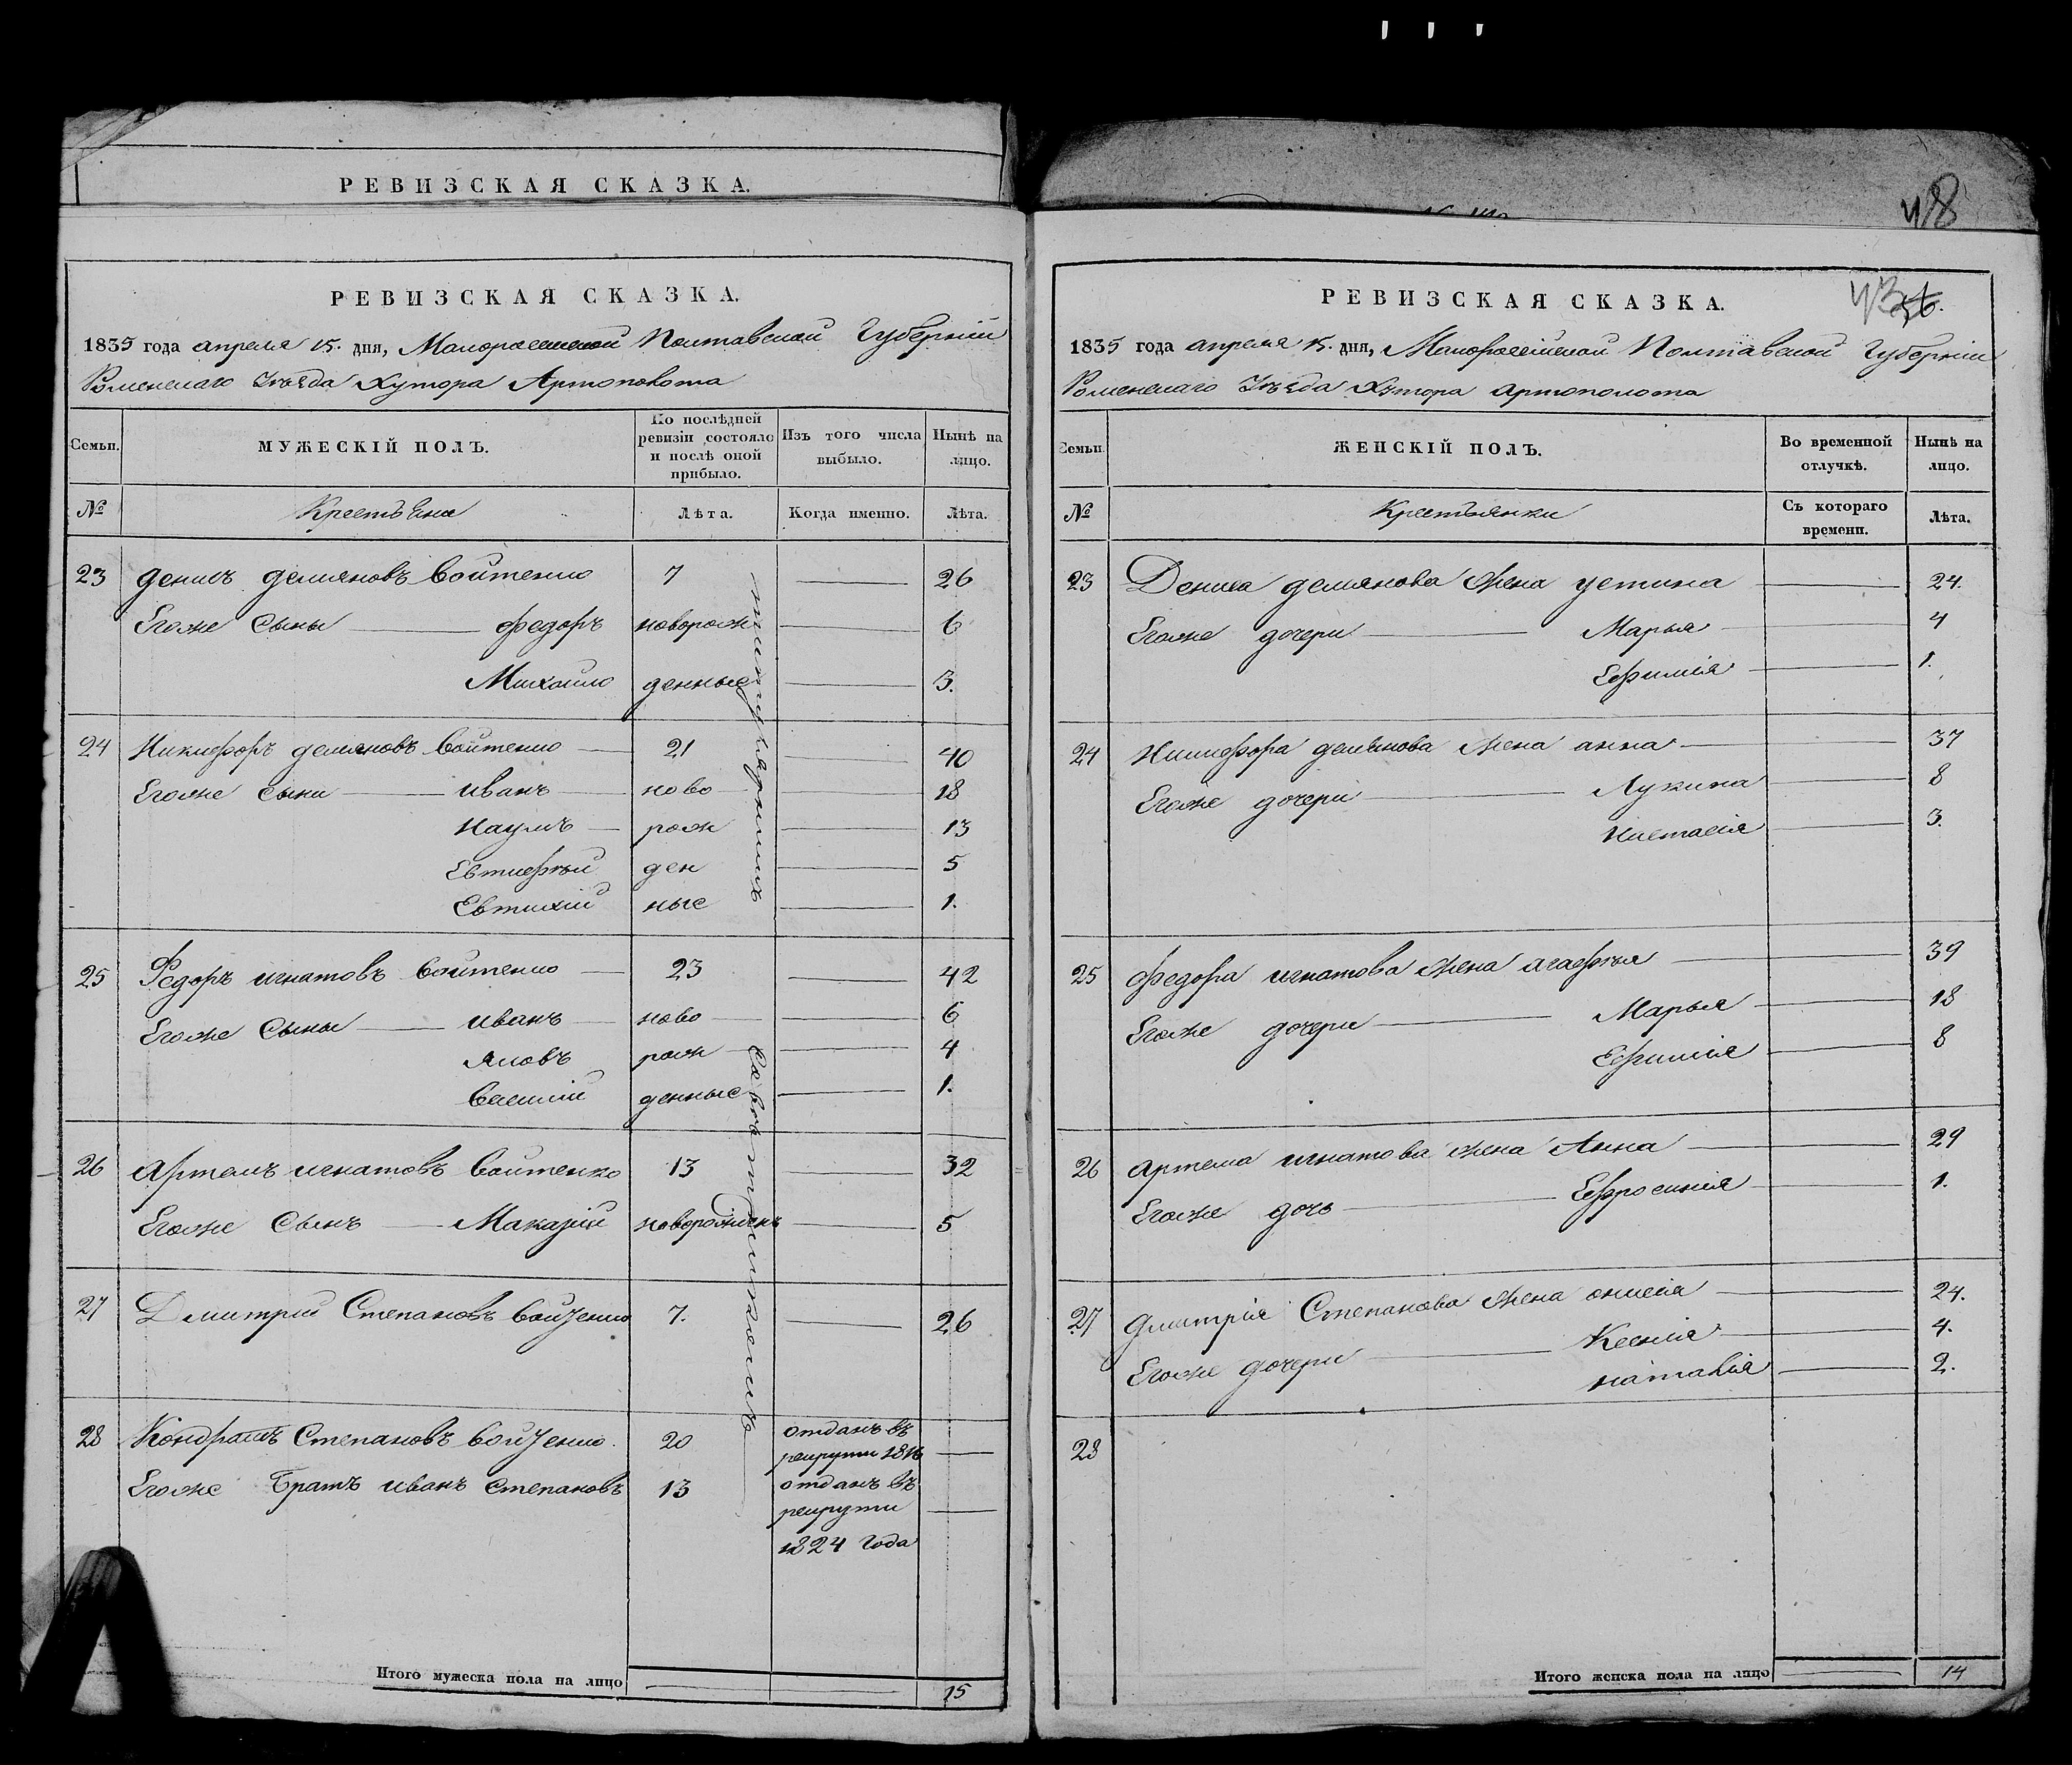 48
РЕВИЗСКАЯ СКАЗКА.
РЕВИЗСКАЯ СКАЗКА.
1835 года апреля 15. дня, Малоросийской Полтавской Губерніи
Роменскаго Уѣзда Хутора Артополота
Семьи. МУЖЕСКІЙ ПОЛЪ. По послѣдней ревизіи состояло и послѣ оной прибыло. Изъ того числа выбыло. Нынѣ на лицо.
№ Крестьяне Лѣта. Когда именно. Лѣта.
23 Денисъ Демяновъ Войтенко 7 26
Егоже Сыны Федоръ новорож 6
Михайло денные 3.
24 Никифоръ Демяновъ Войтенко 21 40
Егоже Сыни Иванъ ново 18
Наумъ рож 13
Евтифѣй ден 5
Евтихій ные 1.
25 Федоръ Игнатовъ Войтенко 23 42
Егоже Сыны Иванъ ново 6
Яковъ рож 4
Василій денные 1.
26 Артемъ Игнатовъ Войтенко 13 32
Егоже Сынъ Макарій новорожденъ 5
27 Дмитрій Степановъ Войтенко 7. 26
28 Кондратъ Степановъ Войтенко. 20 отданъ въ рекруты 1816
Егоже Братъ Иванъ Степановъ 13 отданъ въ рекруты 1824 года
Итого мужеска пола на лицо 15
РЕВИЗСКАЯ СКАЗКА. 43
1835 года апреля 15. дня, Малоросійской Полтавской Губерніи
Роменскаго Уѣзда Хутора Артополота
Семьи. ЖЕНСКІЙ ПОЛЪ. Во временной отлучкѣ. Нынѣ на лицо.
№ Крестьянки Съ котораго времени. Лѣта.
23 Дениса Демянова Жена Устина 24.
Егоже дочери Марья 4
Ефимія 1.
24 Никифора Демянова Жена Анна 37
Егоже дочери Лукина 8
Настасія 3.
25 Федора Игнатова Жена Агафья 39
Егоже дочери Марья 18
Ефимія 8
26 Артема Игнатова Жена Анна 29
Егоже дочь Ефросинія 1.
27 Дмитрія Степанова Жена Онисія 24.
Егоже дочери Ксенія 4.
Наталія 2.
28
Итого женска пола на лицо 14